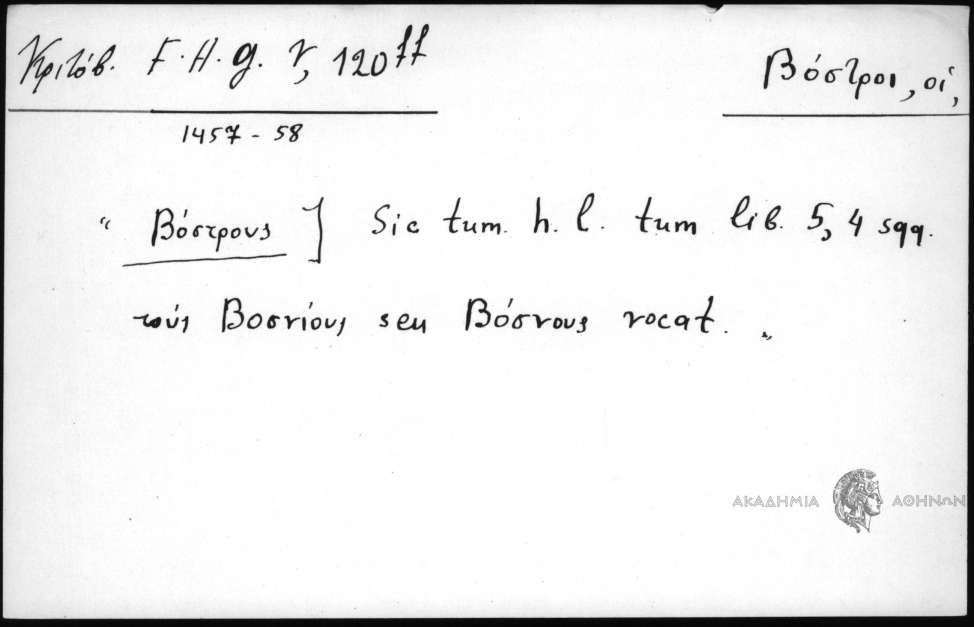 Κριτόβ. F. H. g. V, 120 ff
Βόστροι, οἱ,
1457 - 58
“ Βόστρους ] Sic tum h. l. tum lib. 5, 4 sqq.
τοὺς Βοσνίους seu Βόσνους vocat. „
ΑΚΑΔΗΜΙΑ ΑΘΗΝΩΝ